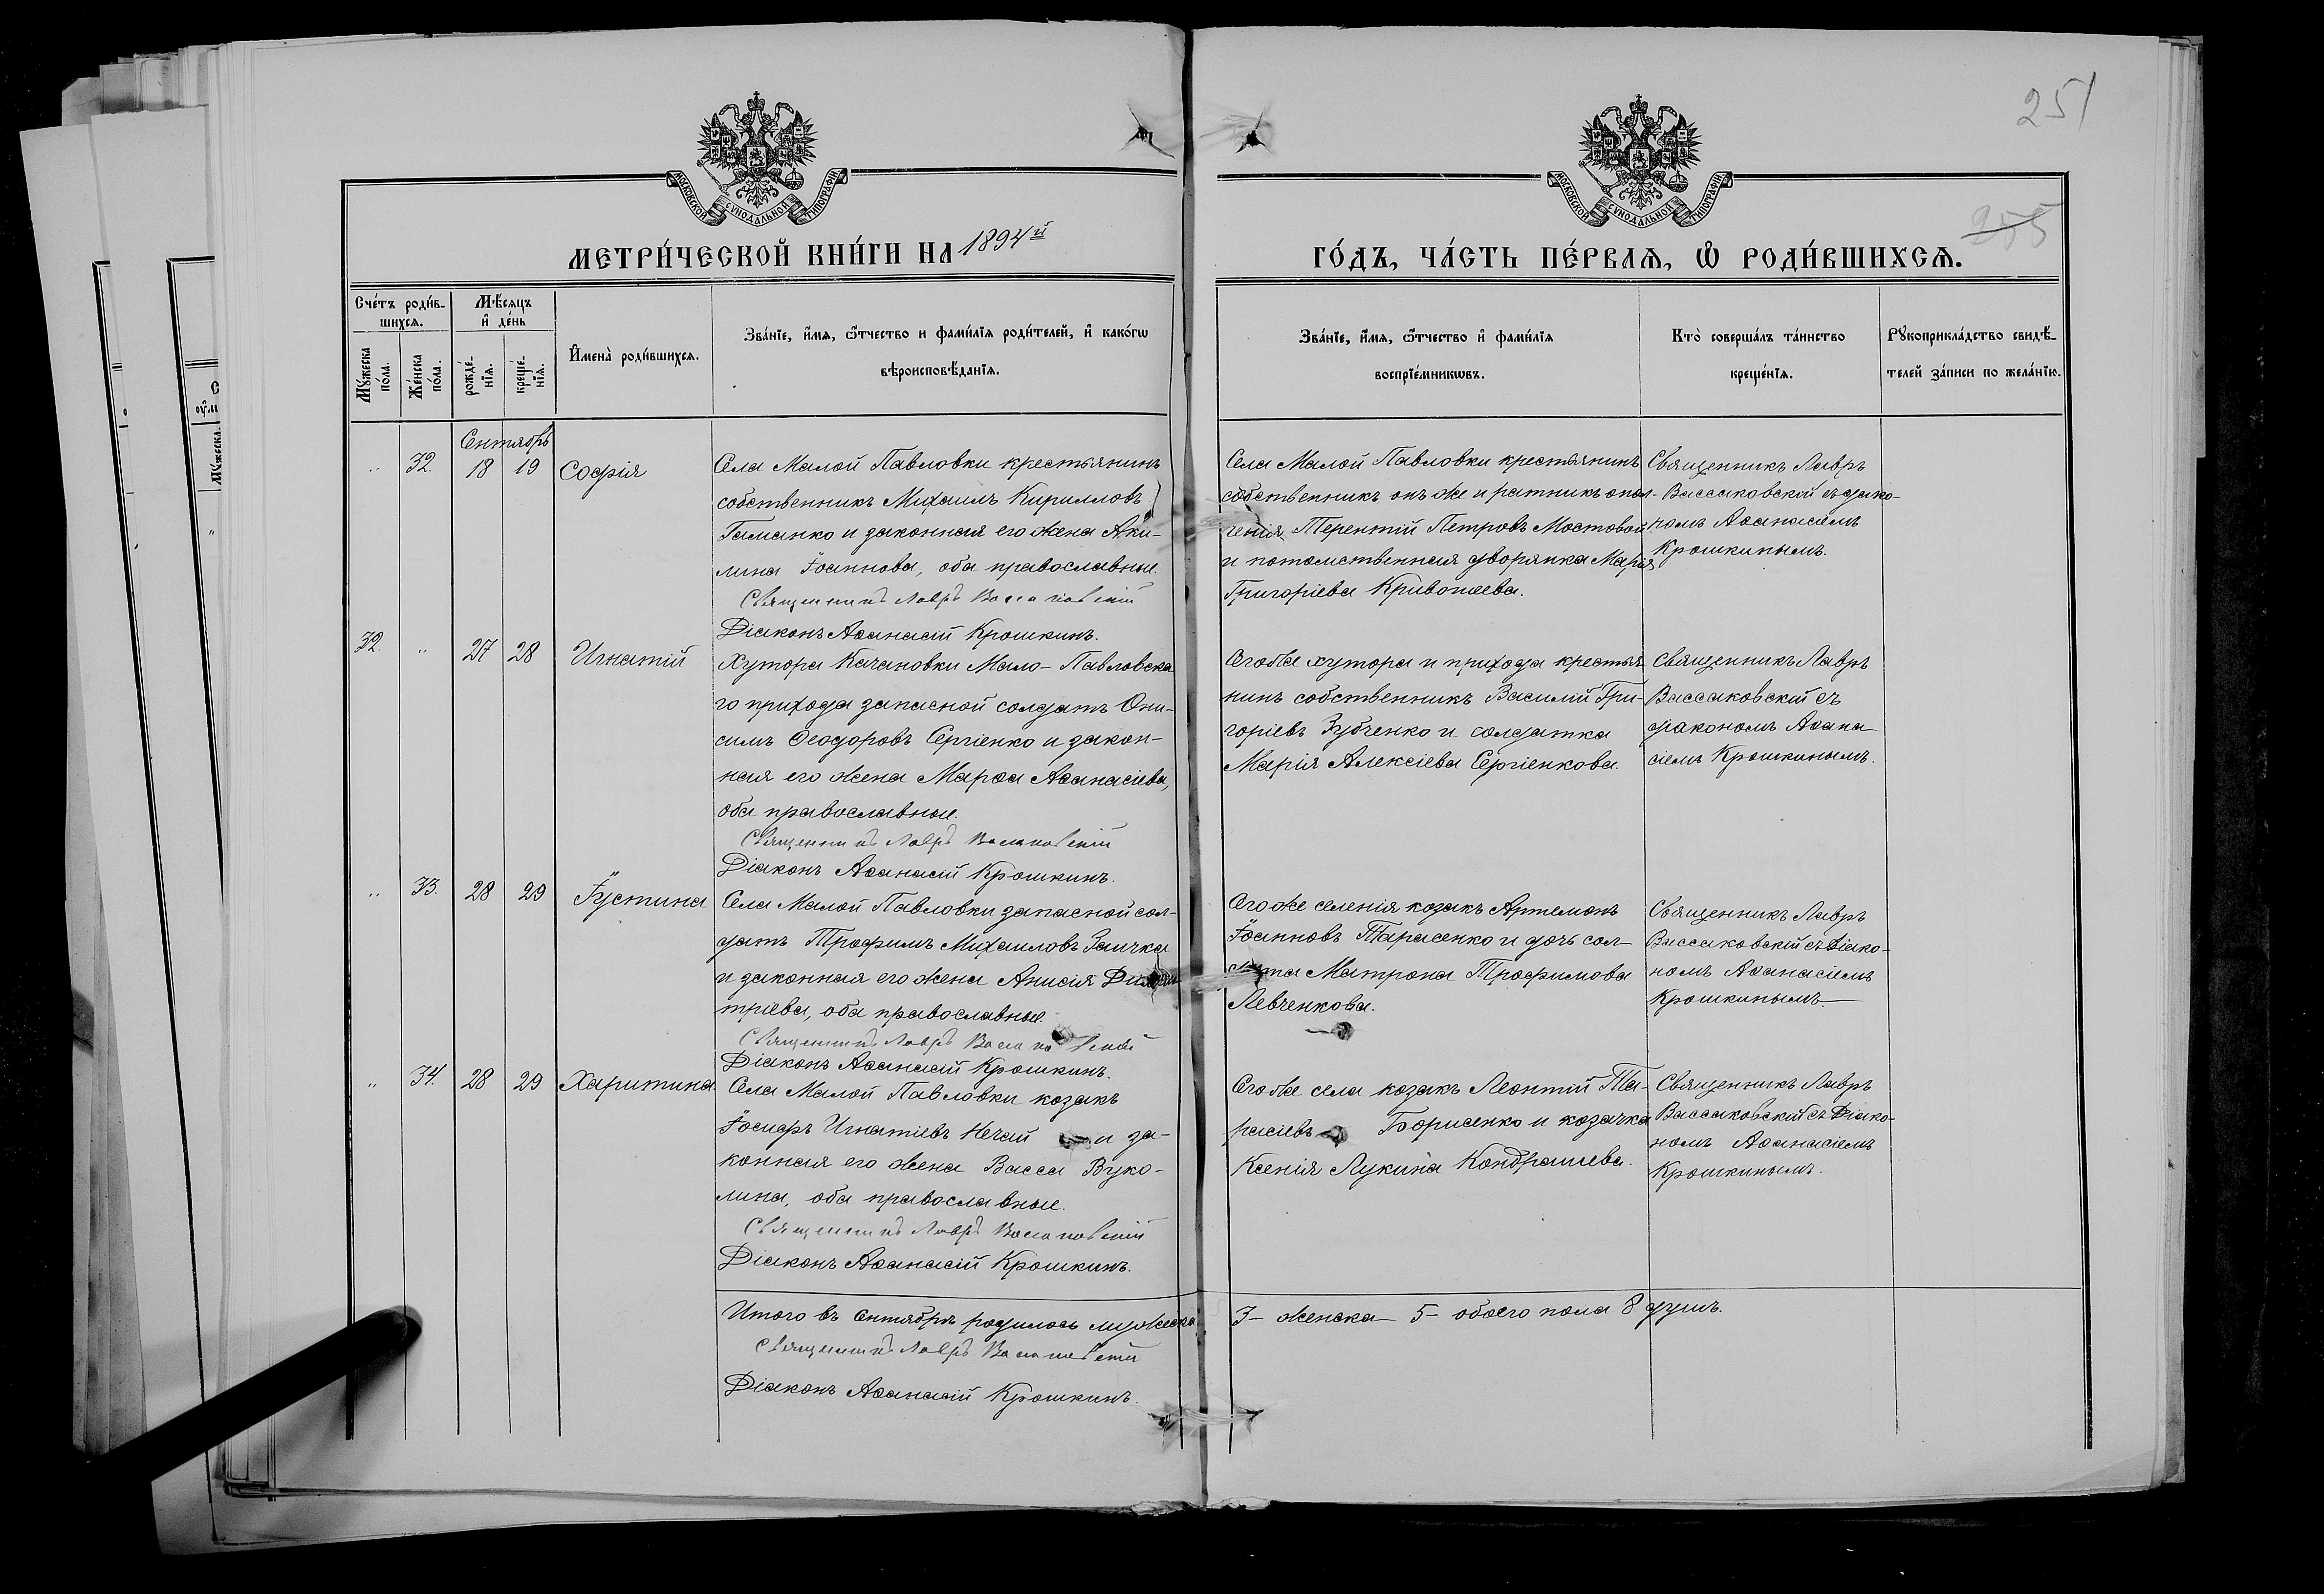 251
МОСКОВСКОЙ СУНОДАЛЬНОЙ ТИПОГРАФІИ
МОСКОВСКОЙ СУНОДАЛЬНОЙ ТИПОГРАФІИ
255
МЕТРИ́ЧЕСКОЙ КНИ́ГИ НА 1894й
ГО́ДЪ, ЧА́СТЬ ПЕ́РВАѦ, Ѿ РОДИ́ВШИХСѦ.
Сче́тъ роди́в-
шихсѧ.
Мѣ́сѧцъ
и҆ де́нь
Мꙋжеска
по́ла.
Же́нска
по́ла.
рожде́-
нїѧ.
креще́-
нїѧ.
И҆мена̀ роди́вшихсѧ.
Зва́нїе, и҆́мѧ, ѻ҆́тчество и фами́лїѧ роди́телей, и҆ како́гѡ
вѣроисповѣ́данїѧ.
Зва́нїе, и҆́мѧ, ѻ҆́тчество и҆ фами́лїѧ
воспрїе́мникѡвъ.
Кто̀ соверша́лъ та́инство
креще́нїѧ.
Рꙋкоприкла́дство свидѣ́-
телей за́писи по жела́нїю.
Сентябрь
" 32. 18 19 Софія
Села Малой Павловки крестьянинъ
собственникъ Михаилъ Кирилловъ
Гаманко и законная его жена Аки-
лина Іоаннова, оба православные.
Священникъ Лавръ Вассаковскій
Діаконъ Аѳанасій Крошкинъ.
Села Малой Павловки крестьянинъ
собственникъ онъ же и ратникъ опол-
ченія Терентій Петровъ Мостовой
и потомственная дворянка Марія
Григоріева Кривошеева.
Священникъ Лавръ
Вассаковскій съ діако-
номъ Аѳанасіемъ
Крошкинымъ.
32. " 27 28 Игнатій
Хутора Качановки Мало-Павловска
го прихода запасной солдатъ Они-
симъ Ѳеодоровъ Сергіенко и закон-
ная его жена Марѳа Аѳанасіева,
оба православные.
Священникъ Лавръ Вассаковскій
Діаконъ Аѳанасій Крошкинъ.
Того же хутора и прихода крестья
нинъ собственникъ Василій Гри-
горіевъ Зубченко и солдатка
Марія Алексіева Сергіенкова.
Священникъ Лавръ
Вассаковскій съ
діакономъ Аѳана-
сіемъ Крошкинымъ.
" 33. 28 29 Іустина
Села Малой Павловки запасной сол-
датъ Трофимъ Михаиловъ Заичка
и законная его жена Анисія Дими
тріева, оба православные.
Священникъ Лавръ Вассаковскій
Діаконъ Аѳанасій Крошкинъ.
Того же селенія козакъ Артемонъ
Іоанновъ Тарасенко и дочь сол-
дата Матрона Трофимова
Левченкова.
Священникъ Лавръ
Вассаковскій съ Діако-
номъ Аѳанасіемъ
Крошкинымъ.
" 34. 28 29 Харитина
Села Малой Павловки козакъ
Іосифъ Игнатіевъ Нечай и за-
конная его жена Васса Вуко-
лина, оба православные.
Священникъ Лавръ Вассаковскій
Діаконъ Аѳанасій Крошкинъ.
Того же села козакъ Леонтій Та-
расіевъ Борисенко и козачка
Ксенія Лукина Кондрашева.
Священникъ Лавръ
Вассаковскій съ Діако-
номъ Аѳанасіемъ
Крошкинымъ.
Итого въ Сентябрѣ родилось мужеска 3- женска- 5- обоего пола 8 душъ.
Священникъ Лавръ Вассаковскій
Діаконъ Аѳанасій Крошкинъ.